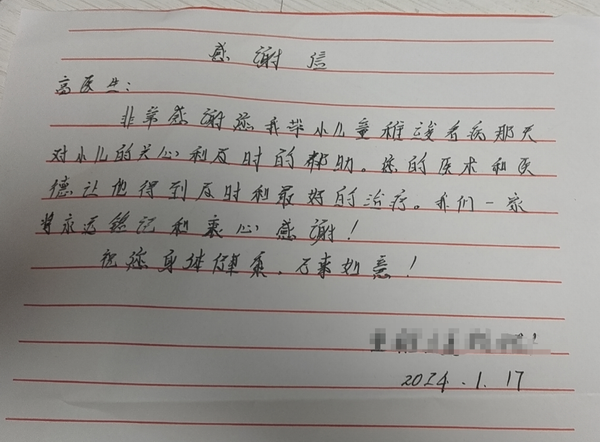 感谢信
高医生:
非常感谢您我毕小儿童稚逡看病那天
对小儿的关心和及时的帮助。您的医术和医
德让他得到及时和最好的治疗。我们一家
将永远铭记和衷心感谢!
祝您身体健康,万事如意!
2024.1.17